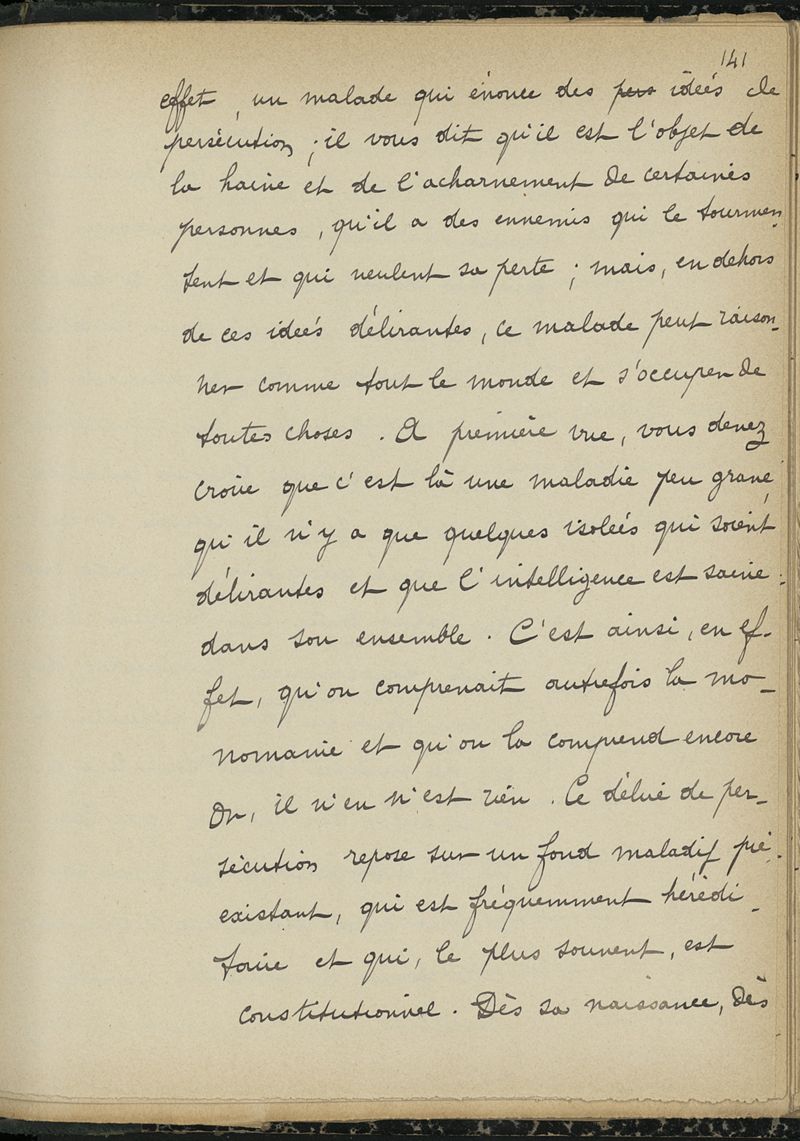 141
effet, un malade qui énonce des pers idées de
persécution ; il vous dit qu'il est l'objet de
la haine et de l'acharnement de certaines
personnes, qu'il a des ennemis qui le tourmen-
tent et qui veulent sa perte ; mais, en dehors
de ces idées délirantes, ce malade peut raison-
ner comme tout le monde et s'occuper de
toutes choses. A première vue, vous devez
croire que c'est là une maladie peu grave,
qu'il n'y a que quelques isolées qui soient
délirantes et que l'intelligence est saine
dans son ensemble. C'est ainsi, en ef-
fet, qu'on comprenait autrefois la mo-
nomanie et qu'on la comprend encore
Or, il n'en n'est rien. Ce délire de per-
sécution repose sur un fond maladif pré-
existant, qui est fréquemment hérédi-
taire et qui, le plus souvent, est
constitutionnel. Dès sa naissance, dès